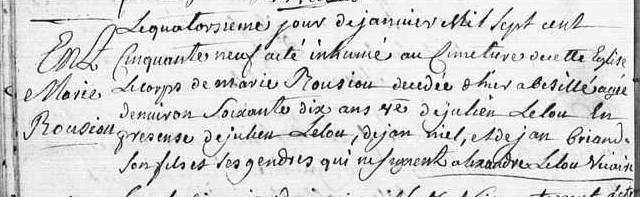 Le quatorzieme jour de janvier Mil sept cent
Ent
Cinquante neuf a eté inhumé au Cimeture de cette Eglise
Marie
Le corps de marie Rousiou decedée d'hier a besillé agée
Rousiou
denviron Soixante dix ans ve de julien Lelou En
presense de julien Lelou, de jan niel, et de jan briand
son fils et ses gendres qui ne signent alexandre Lelou Vicaire